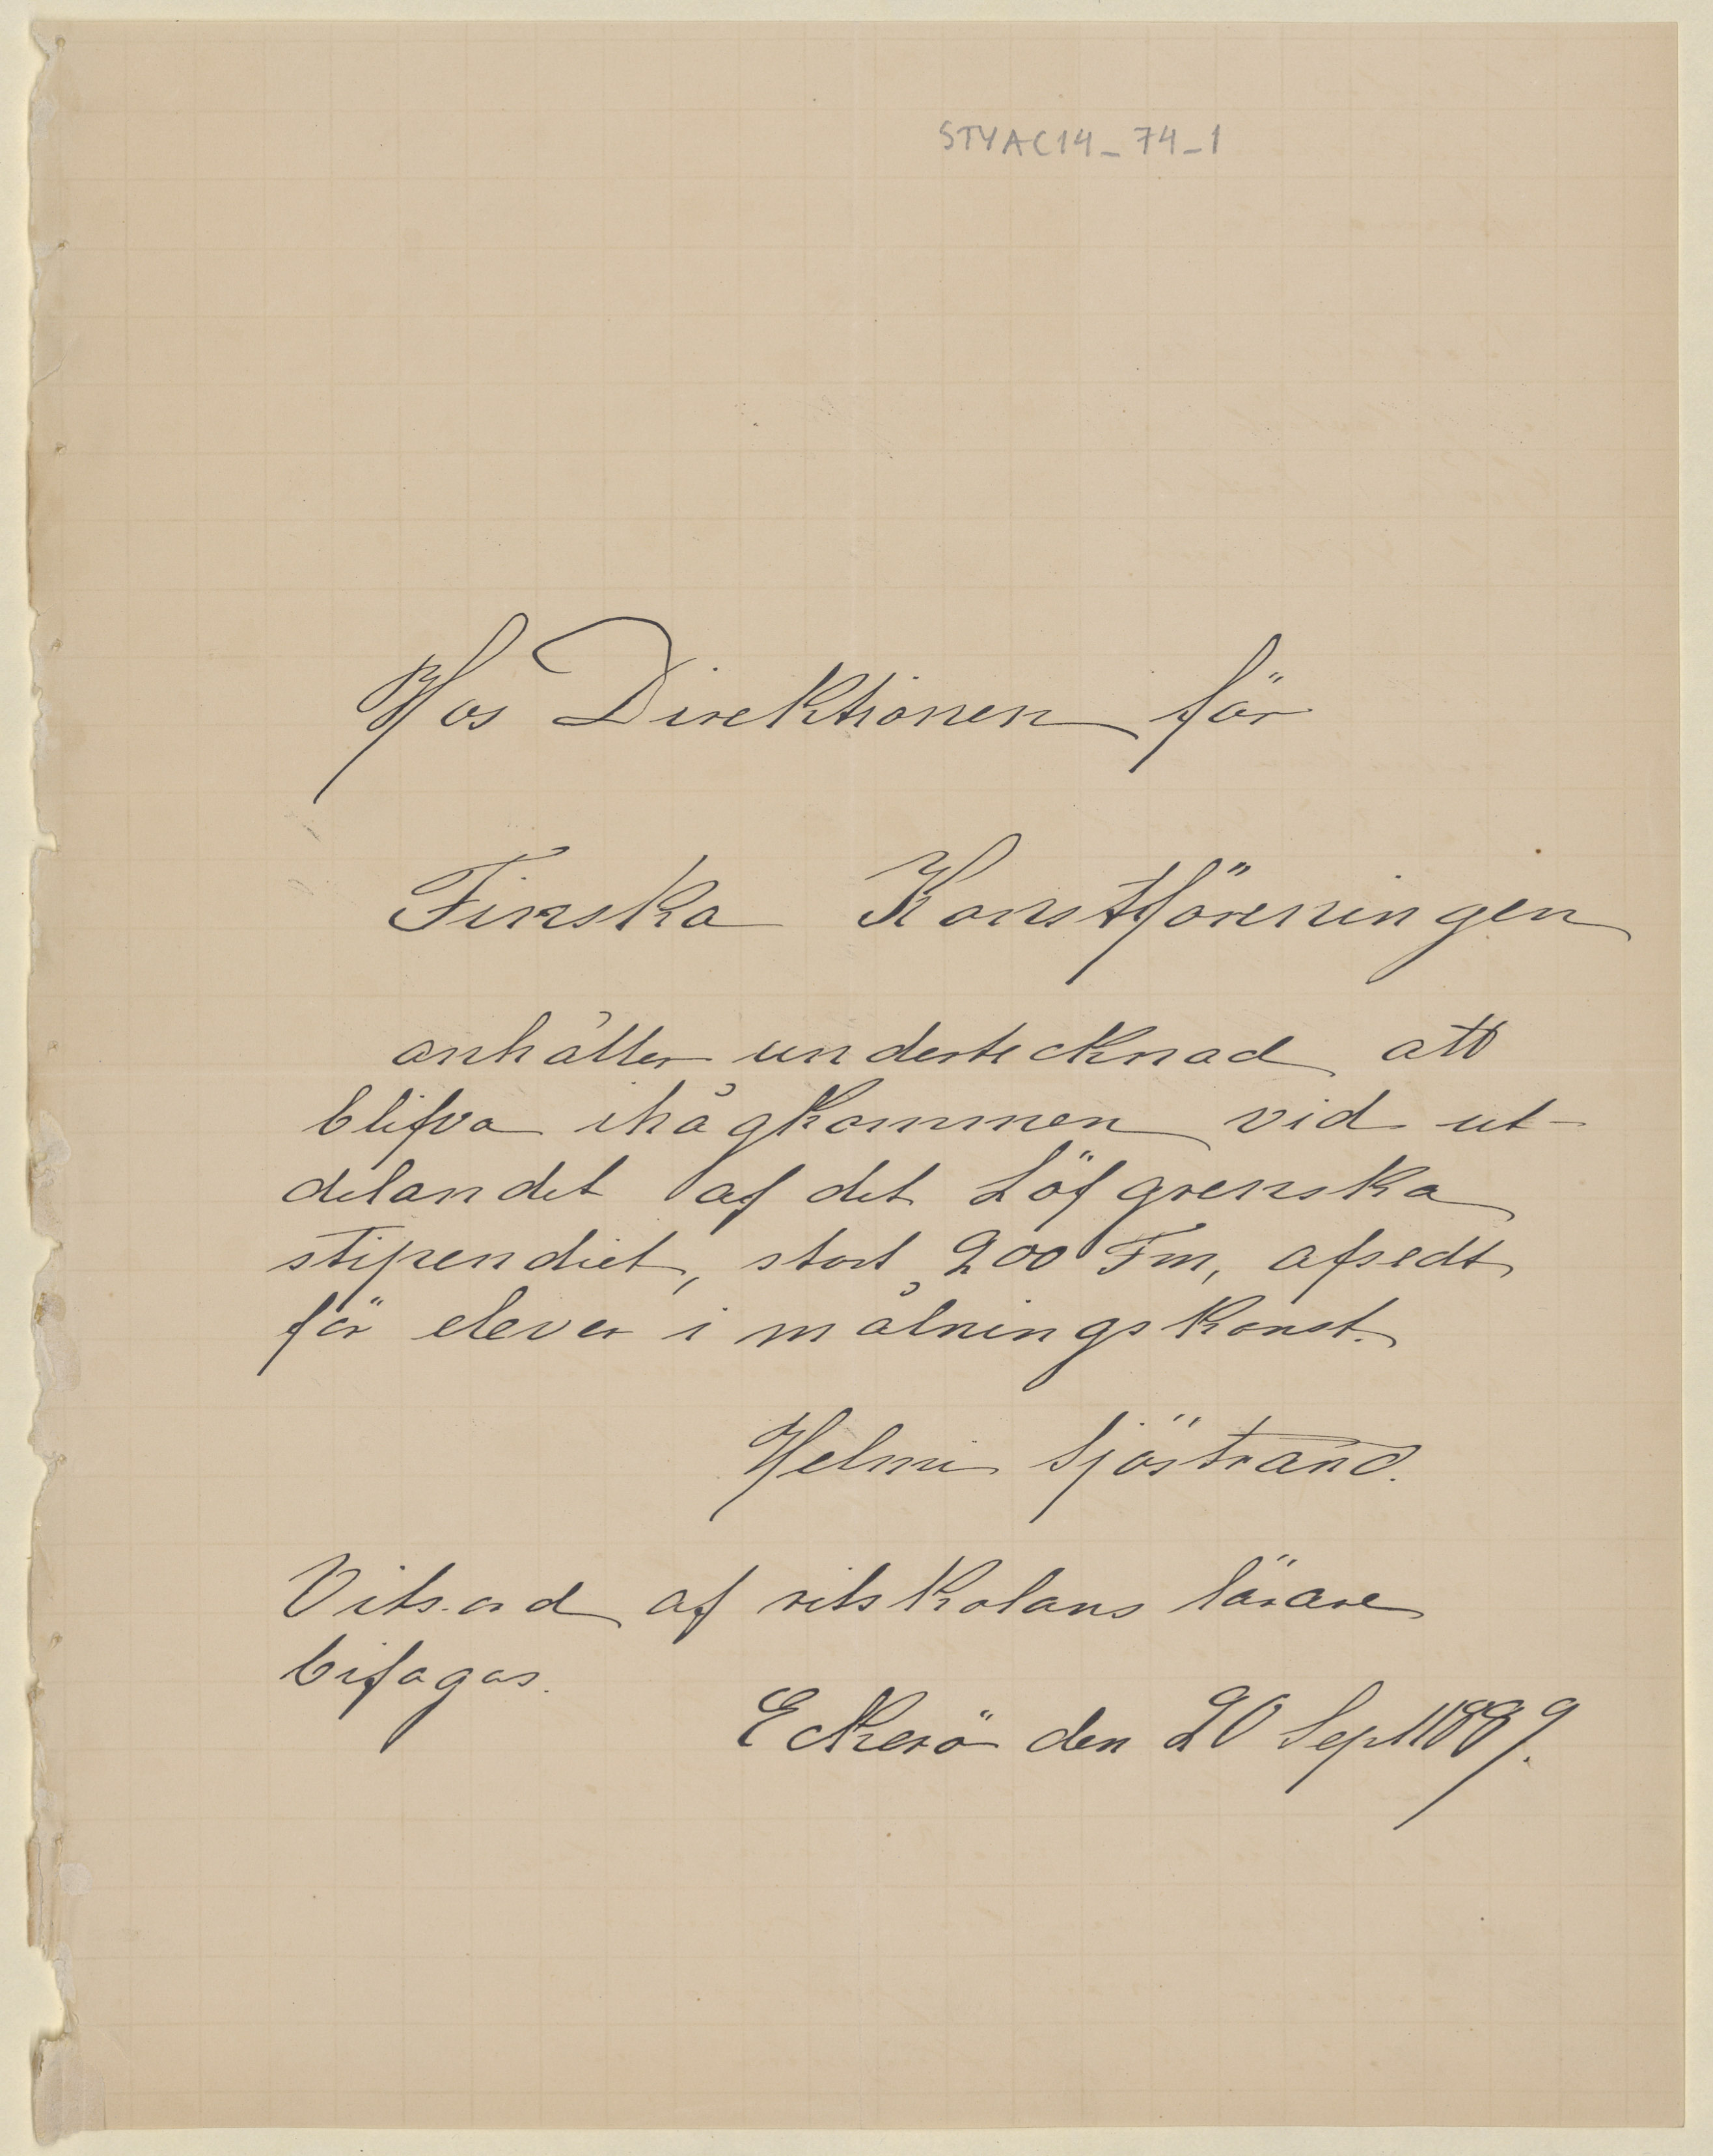 STYAC14_74_1
Hos Direktionen för
Finska Konstföreningen
anhåller undertecknad att
blifva ihågkommen vid ut-
delandet af det Löfgrenska
stipendiet, stort 200 Fm, afsedt
för elever i målningskonst.
Helmi Sjöstrand.
Vitsord af ritskolans lärare
bifogas.
Eckerö den 20 Sept 1889.